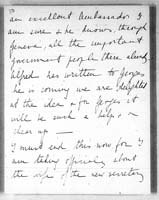 an excellent Ambassador I
am sure & he knows, through
Geneva, all the important
Government people there already.
has written to Georges
he is coming we are delighted
at the idea & for Georges it
will be such a help, &
cheer up —
I must end this now for I
am taking officially about
the wife of the new secretary